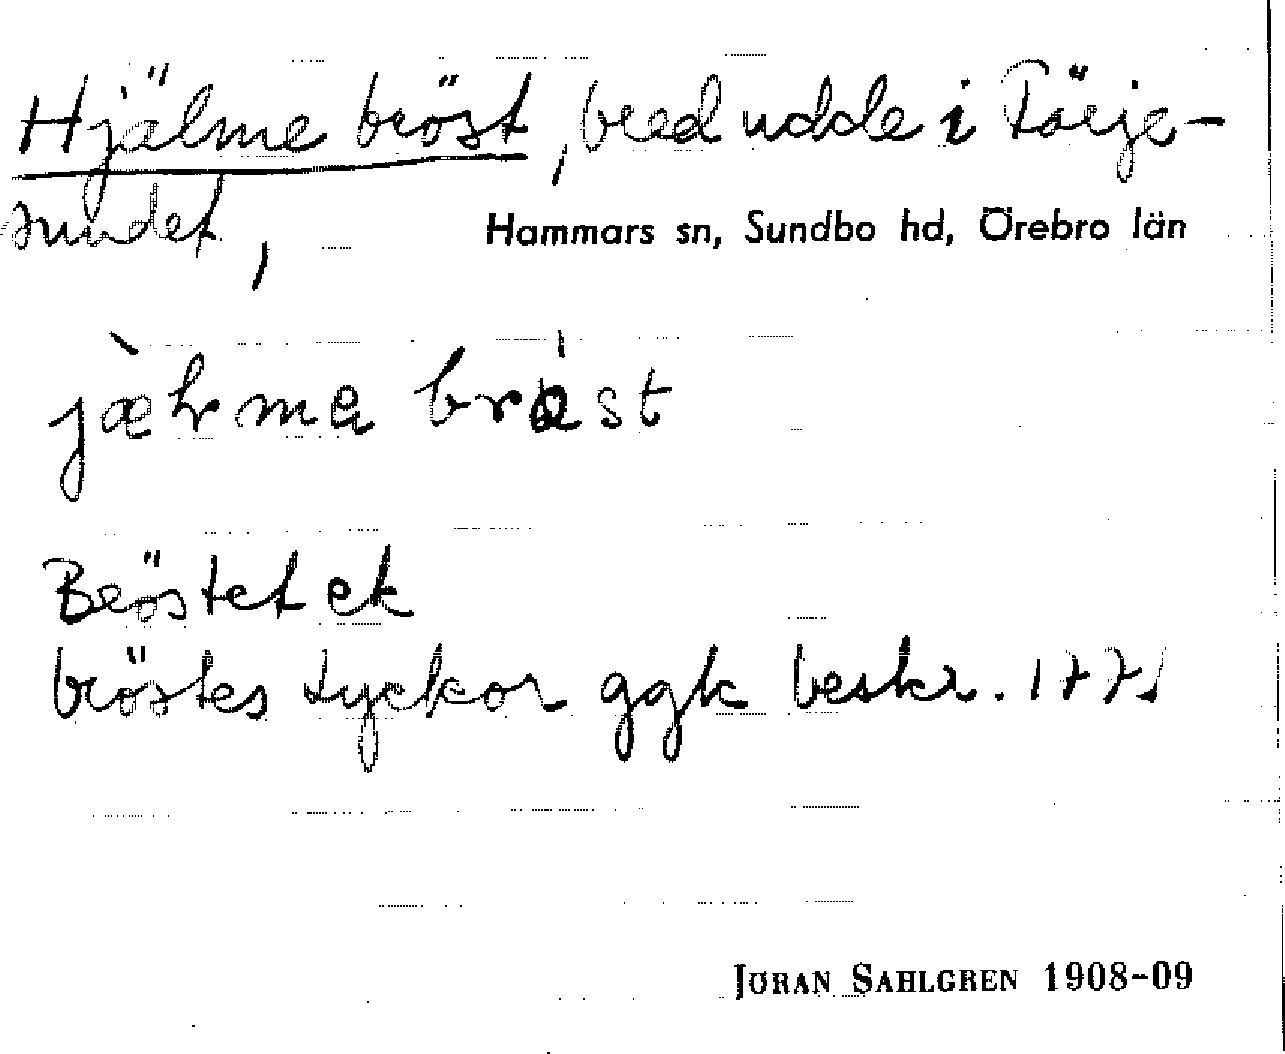 Hjälme bröst, bred udde i Törje-
sundet,
Hammars sn, Sundbo hd, Örebro län
bröst
Bröstet ek
bröstes tyckor ggk beskr. 177
JÖRAN SAHLGREN 1908-09